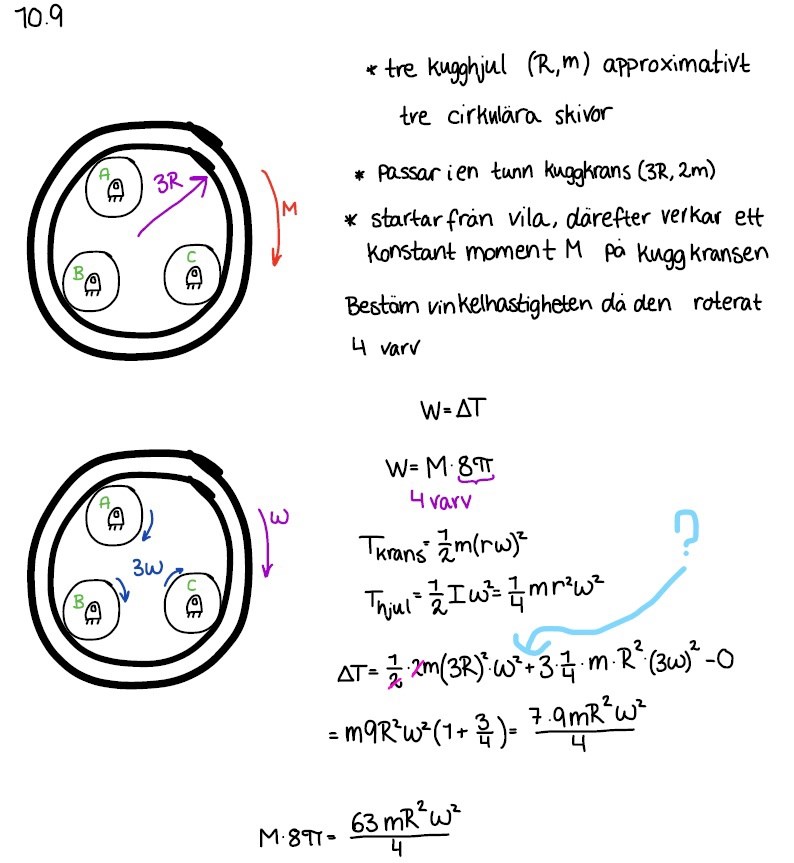 10.9
* tre kugghjul (R,m) approximativt
tre cirkulära skivor
* passar i en tunn kuggkrans (3R, 2m)
* startar från vila, därefter verkar ett
konstant moment M på kuggkransen
Bestäm vinkelhastigheten då den roterat
4 varv
A
3R
M
B
C
W=ΔT
W= M·8π
4 varv
T_krans = 1/2 m(rω)²
T_hjul = 1/2 Iω² = 1/4 mr²ω²
A
ω
3ω
B
C
?
ΔT= 1/2 · 2m(3R)²·ω² + 3·1/4 · m·R²·(3ω)² - 0
= m9R²ω²(1 + 3/4) = 7·9mR²ω²/4
M·8π = 63mR²ω²/4